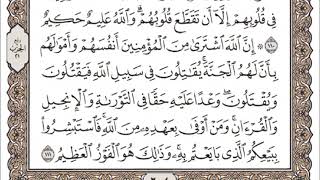 فِي قُلُوبِهِمْ إِلَّآ أَن تَقَطَّعَ قُلُوبُهُمْ ۗ وَٱللَّهُ عَلِيمٌ حَكِيمٌ
١١٠ ۞ إِنَّ ٱللَّهَ ٱشْتَرَىٰ مِنَ ٱلْمُؤْمِنِينَ أَنفُسَهُمْ وَأَمْوَٰلَهُم
بِأَنَّ لَهُمُ ٱلْجَنَّةَ ۚ يُقَٰتِلُونَ فِي سَبِيلِ ٱللَّهِ فَيَقْتُلُونَ
وَيُقْتَلُونَ ۖ وَعْدًا عَلَيْهِ حَقًّا فِي ٱلتَّوْرَىٰةِ وَٱلْإِنجِيلِ
وَٱلْقُرْءَانِ ۚ وَمَنْ أَوْفَىٰ بِعَهْدِهِۦ مِنَ ٱللَّهِ ۚ فَٱسْتَبْشِرُوا۟
بِبَيْعِكُمُ ٱلَّذِي بَايَعْتُم بِهِۦ ۚ وَذَٰلِكَ هُوَ ٱلْفَوْزُ ٱلْعَظِيمُ ١١١